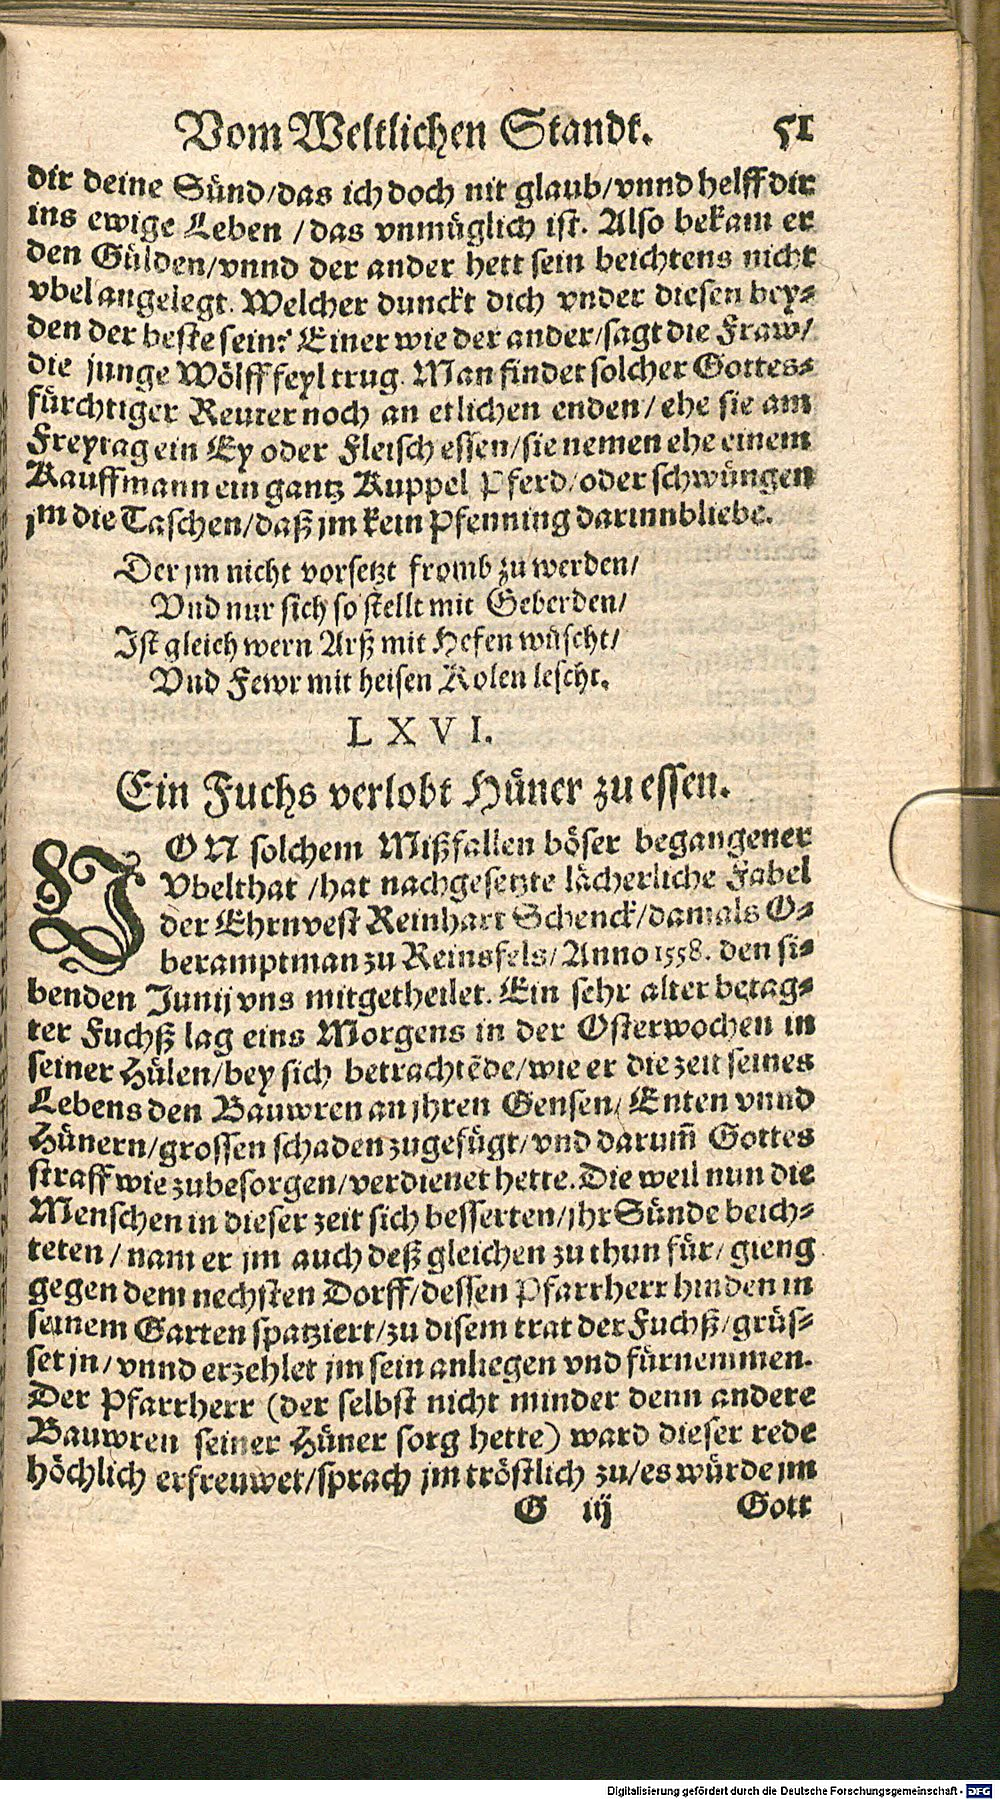 Vom Weltlichen Standt. 51
dir deine Sünd/das ich doch nit glaub/vnnd helff dir
ins ewige Leben /das vnmüglich ist. Also bekam er
den Gülden/vnnd der ander hett sein beichtens nicht
vbel angelegt. Welcher dunckt dich vnder diesen bey⸗
den der beste sein? Einer wie der ander/sagt die Fraw/
die junge Wölff feyl trug. Man findet solcher Gottes⸗
fürchtiger Reuter noch an etlichen enden/ ehe sie am
Freytag ein Ey oder Fleisch essen/sie nemen ehe einem
Kauffmann ein gantz Kuppel Pferd/oder schwüngen
jm die Taschen/daß jm kein Pfenning darinn bliebe.
Der jm nicht vorsetzt fromb zu werden/
Vnd nur sich so stellt mit Geberden/
Ist gleich wern Arß mit Hefen wüscht/
Vnd Fewr mit heisen Kolen lescht.
LXVI.
Ein Fuchs verlobt Hüner zu essen.
VON solchem Mißfallen böser begangener
Vbelthat /hat nachgesetzte lächerliche Fabel
der Ehrnvest Reinhart Schenck/damals O⸗
beramptman zu Reinsfels/Anno 1558. den si⸗
benden Junij vns mitgetheilet. Ein sehr alter betag⸗
ter Fuchß lag eins Morgens in der Osterwochen in
seiner Hülen/bey sich betrachtēde/wie er die zeit seines
Lebens den Bauwren an jhren Gensen/ Enten vnnd
Hünern/grossen schaden zugefügt/vnd darum̃ Gottes
straff wie zubesorgen/verdienet hette. Die weil nun die
Menschen in dieser zeit sich besserten/jhr Sünde beich⸗
teten / nam er jm auch deß gleichen zu thun für/ gieng
gegen dem nechsten Dorff/dessen Pfarrherr hinden in
seinem Garten spatziert/zu disem trat der Fuchß/grüs⸗
set jn/vnnd erzehlet jm sein anligen vnd fürnemmen.
Der Pfarrherr (der selbst nicht minder denn andere
Bauwren seiner Hüner sorg hette) ward dieser rede
höchlich erfreuwet/sprach jm tröstlich zu/es würde jm
G iij Gott
Digitalisierung gefördert durch die Deutsche Forschungsgemeinschaft - DFG